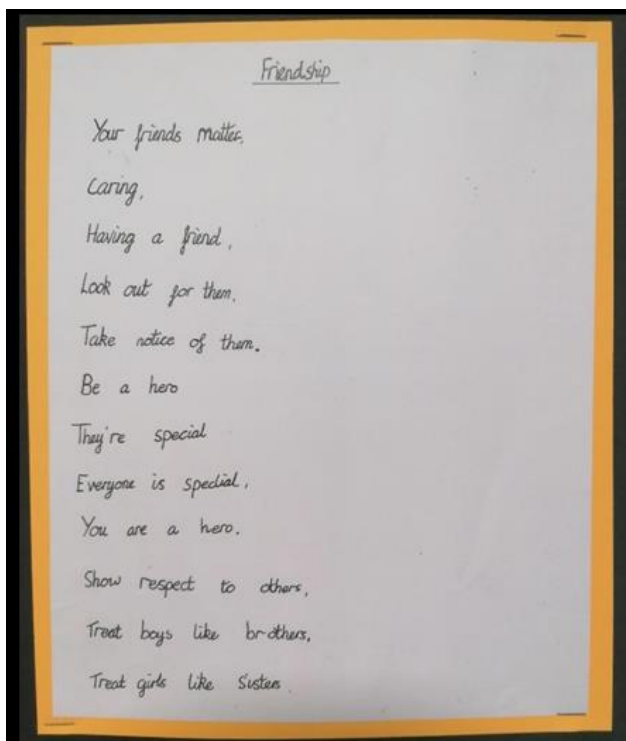 Friendship
Your friends matter,
Caring,
Having a friend,
Look out for them,
Take notice of them.
Be a hero
They're special
Everyone is spedial,
You are a hero.
Show respect to others,
Treat boys like brothers,
Treat girls like Sisters.